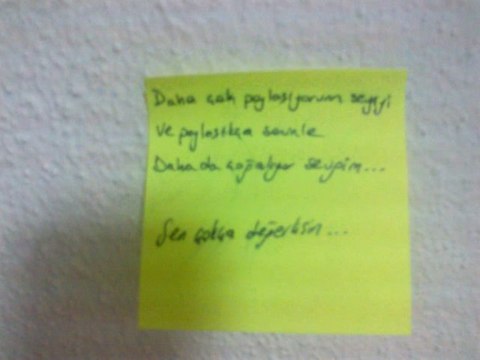 Daha çok paylaşıyorum sevgiyi
Ve paylaştıkça seninle
Daha da çoğalıyor sevgim...
Sen çokça değerlisin...